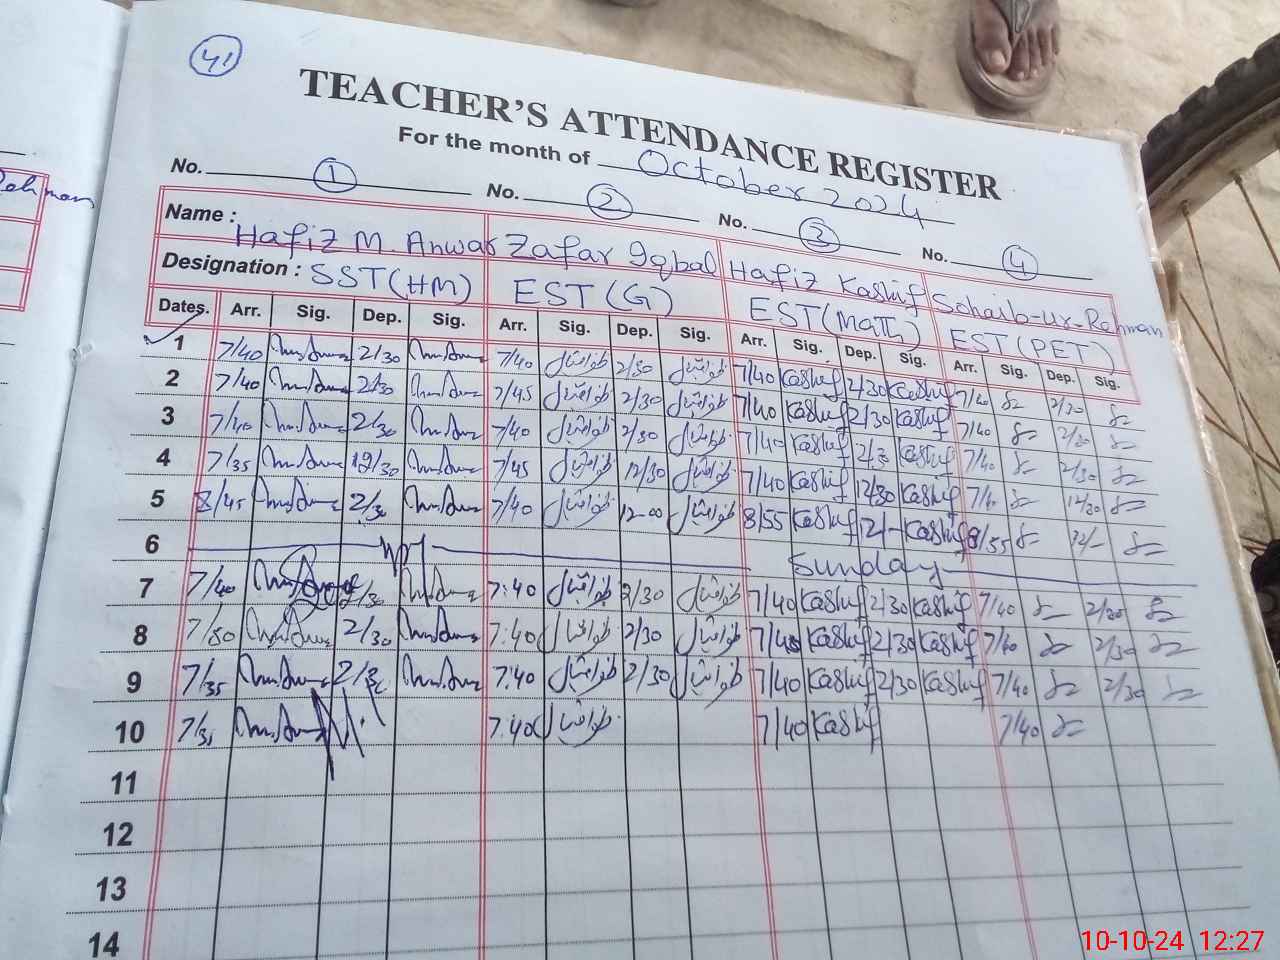 41
TEACHER'S ATTENDANCE REGISTER
For the month of October 2024
No. 1 No. 2 No. 3 No. 4
Name : Hafiz M. Anwar Zafar Iqbal Hafiz Kashif Sohaib-ur-Rehman
Designation : SST(HM) EST(G) EST(Math) EST(PET)
Dates. Arr. Sig. Dep. Sig. Arr. Sig. Dep. Sig. Arr. Sig. Dep. Sig. Arr. Sig. Dep. Sig.
1 7/40 2/30 7/40 ظفراقبال 2/30 ظفراقبال 7/40 Kashif 2/30 Kashif 7/40 2/30
2 7/40 2/30 7/45 ظفراقبال 2/30 ظفراقبال 7/40 Kashif 2/30 Kashif 7/40 2/30
3 7/40 2/30 7/40 ظفراقبال 2/30 ظفراقبال 7/40 Kashif 2/3 Kashif 7/40 2/30
4 7/35 12/30 7/45 ظفراقبال 12/30 ظفراقبال 7/40 Kashif 12/30 Kashif 7/40 12/30
5 8/45 2/30 7/40 ظفراقبال 12-00 ظفراقبال 8/55 Kashif 12/- Kashif 8/55 12/-
6 Sunday
7 7/40 2/30 7:40 ظفراقبال 2/30 ظفراقبال 7/40 Kashif 2/30 Kashif 7/40 2/30
8 2/30 7:40 ظفراقبال 2/30 ظفراقبال 7/40 Kashif 2/30 Kashif 7/40 2/30
9 7/35 7:40 ظفراقبال 2/30 ظفراقبال 7/40 Kashif 2/30 Kashif 7/40 2/30
10 7/35 7:40 ظفراقبال 7/40 Kashif 7/40
11
12
13
14
10-10-24 12:27